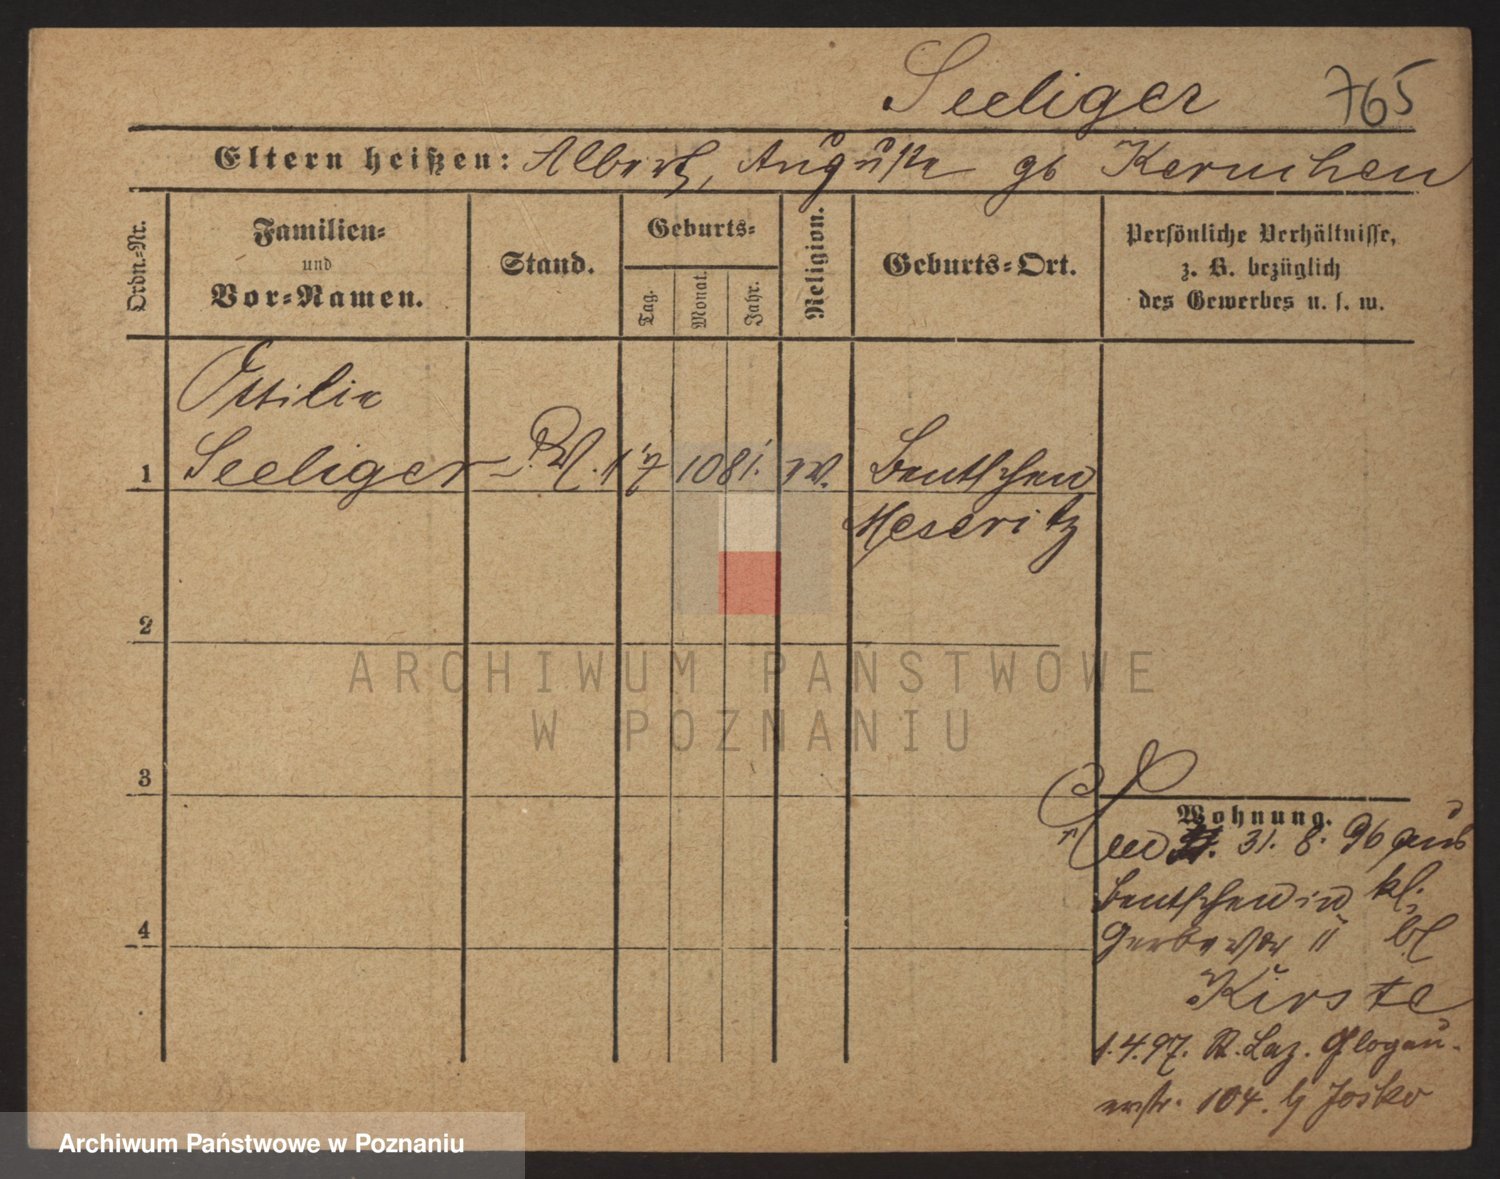 Seeliger 765
Eltern heißen: Albert, Auguste gb Kernchen
Ordn.-Nr.
Familien-
und
Vor-Namen.
Stand.
Geburts-
Tag.
Monat.
Jahr.
Religion.
Geburts-Ort.
Persönliche Verhältnisse,
z. B. bezüglich
des Gewerbes u. s. w.
Ottilie
1 Seeliger 17 10 81. Bentschen
Meseritz
2
3
4
Wohnung.
31. 8. 96 aus
Bentschen in kl.
Gerber 11 bl
Kirste
1.4.97. St. Laz. Glogau-
erstr. 104. b/ Josko
ARCHIWUM PAŃSTWOWE
W POZNANIU
Archiwum Państwowe w Poznaniu